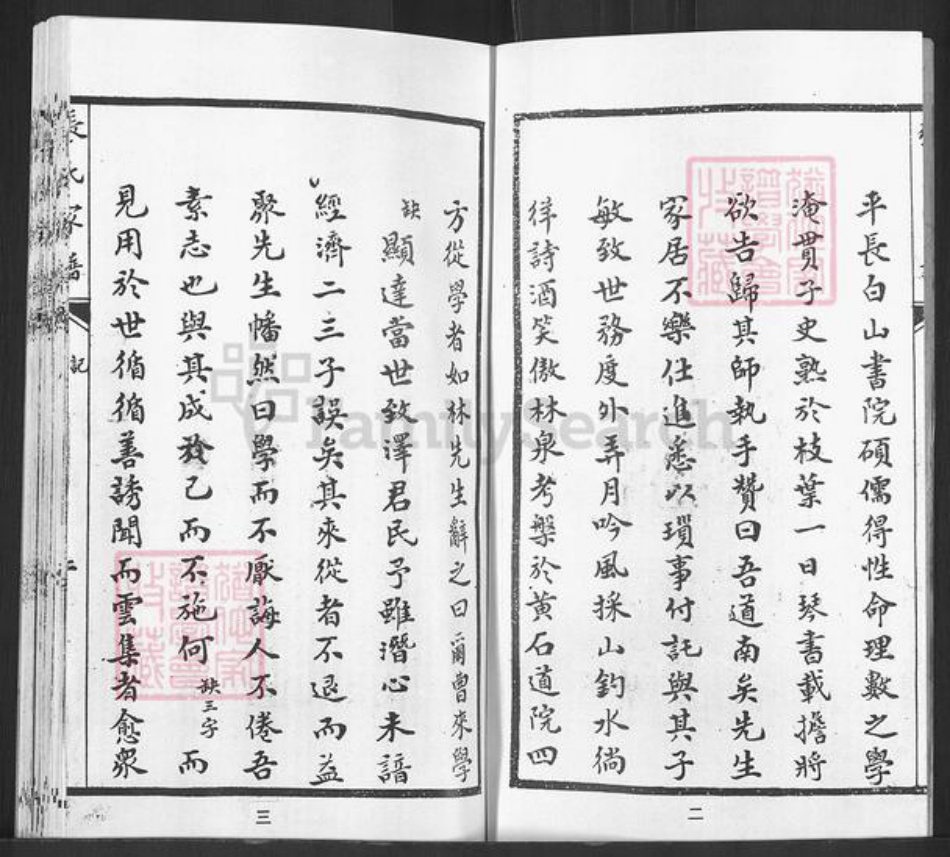 平長白山書院碩儒得性命理數之學
淹貫子史熟於枝葉一日琴書載擔將
欲告歸其師執手贊曰吾道南矣先生
家居不樂仕進悉以瑣事付託與其子
敏致世務度外弄月吟風採山釣水徜
徉詩酒笑傲林泉考槃於黃石道院四
二
方從學者如林先生辭之曰爾曹來學
缺顯達當世致澤君民予雖潛心未諳
經濟二三子誤矣其來從者不退而益
聚先生幡然曰學而不厭誨人不倦吾
素志也與其成發己而不施何缺三字而
見用於世循循善誘聞而雲集者愈衆
三
張氏家譜
記
二
FamilySearch